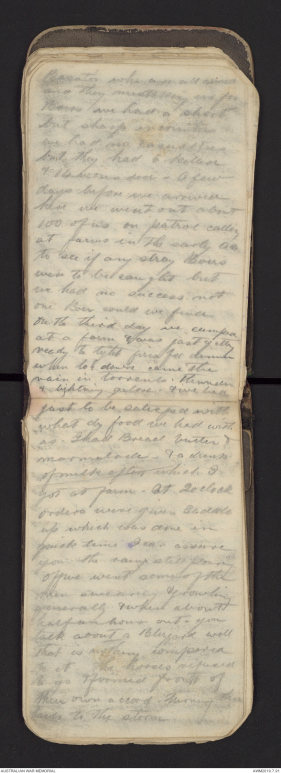 and they
Boers we had a short
but sharp encounter
we had no casualties
but they had 6 killed
& 11 wounded a few
days before we arrived
here we went out about
100 of us on patrol calling
at farms in the early
to see if any stray Boers
were to be caught but
we had no success not
one Boer could we find
On the third day we camped
at a farm & was just getting
ready to light fires for dinner
when lo down came the
rain in torrents thunder
& lightning galore & we had
just to be satisfied with
what dry food we had with
us I had Bread butter &
marmalade & a drink
of milk after which I
got at farm At 2 oclock
orders were given Saddle
up which was done in
quick time I can assure
you the rain still pouring
Off we went some of the
men swearing & growling
generally & when about
half an hour out you
talk about a Blizard well
that is nothing compared
to it the horses refused
to go & formed fronts of
their own accord turning their
to the storm
AUSTRALIAN WAR MEMORIAL